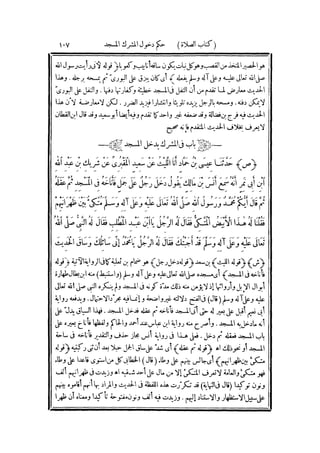 (كتاب الصلاة) حكم دخول المشرك المسجد ١٠٧
هو الحصير المتخذ من القصب وهو كل نبات يكون ساقه أنابيب وكعوبا ﴿قوله لأنى رأيت رسول الله
صلى الله تعالى عليه وعلى آله وسلم يفعله﴾ أى كان يبزق على البورى ثم يمسحه برجله. وهذا
الحديث معارض لما تقدم من أن التفل فى المسجد خطيئة وكفارتها دفنها. والتفل على البورى
لا يمكن دفنه. ومسحه بالرجل يزيده تلويثا وانتشارا فيزيد الضرر. لكن لا معارضة لأن هذا
الحديث فيه فرج بن فضالة وقد ضعفه غير واحد كما تقدم وفيه أيضا أبو سعيد وقد قال ابن القطان
لا يعرف بخلاف الحديث المتقدم فإنه صحيح
باب فى المشرك يدخل المسجد
﴿ص﴾ حَدَّثَنَا عِيسَى بْنُ حَمَّادٍ أَنَا اللَّيْثُ عَنْ سَعِيدٍ الْمَقْبُرِيِّ عَنْ شَرِيكِ بْنِ عَبْدِ اللَّهِ
ابْنِ أَبِي نَمِرٍ أَنَّهُ سَمِعَ أَنَسَ بْنَ مَالِكٍ يَقُولُ دَخَلَ رَجُلٌ عَلَى جَمَلٍ فَأَنَاخَهُ فِي الْمَسْجِدِ ثُمَّ عَقَلَهُ
ثُمَّ قَالَ أَيُّكُمْ مُحَمَّدٌ وَرَسُولُ اللَّهِ صَلَّى اللَّهُ تَعَالَى عَلَيْهِ وَعَلَى آلِهِ وَسَلَّمَ مُتَّكِئٌ بَيْنَ ظَهْرَانَيْهِمْ
فَقُلْنَا لَهُ هَذَا الْأَبْيَضُ الْمُتَّكِئُ فَقَالَ لَهُ الرَّجُلُ يَا ابْنَ عَبْدِ الْمُطَّلِبِ فَقَالَ لَهُ النَّبِيُّ صَلَّى اللَّهُ
تَعَالَى عَلَيْهِ وَعَلَى آلِهِ وَسَلَّمَ قَدْ أَجَبْتُكَ فَقَالَ لَهُ الرَّجُلُ يَا مُحَمَّدُ إِنِّي سَائِلُكَ وَسَاقَ الْحَدِيثَ
﴿ش﴾ ﴿قوله الليث﴾ بن سعد ﴿قوله دخل رجل﴾ هو ضمام بن ثعلبة كما فى الرواية الآتية ﴿قوله
فأناخه فى المسجد﴾ أى مسجده صلى الله تعالى عليه وعلى آله وسلم (واستنبط) منه ابن بطال طهارة
أبوال الإبل وأرواثها إذ لا يؤمن منه ذلك مدة كونه فى المسجد ولم ينكره النبى صلى الله تعالى
عليه وعلى آله وسلم (قال) فى الفتح دلالته غير واضحة وإنما فيه مجرد الاحتمال. ويدفعه رواية
أبى نعيم أقبل على بعير له حتى أتى المسجد فأناخه ثم عقله فدخل المسجد. فهذا السياق يدل على
أنه ما دخل به المسجد. وأصرح منه رواية ابن عباس عند أحمد والحاكم ولفظها فأناخ بعيره على
باب المسجد فعقله ثم دخل. فعلى هذا فى رواية أنس مجاز حذف والتقدير فأناخه فى ساحة
المسجد أو نحو ذلك اه ﴿قوله ثم عقله﴾ أى شد على ساق الجمل حبلا بعد أن ثنى ركبته ﴿قوله
متكئ بين ظهرانيهم﴾ أى جالس بينهم على وطاء (قال) الخطابى كل من استوى قاعدا على وطاء
فهو متكئ والعامة لا تعرف المتكئ إلا من مال على أحد شقيه اه وزيدت فى ظهرانيهم ألف
ونون توكيدا (قال فى النهاية) قد تكررت هذه اللفظة فى الحديث والمراد بها أنهم أقاموه بينهم
على سبيل الاستظهار والاستناد إليهم. وزيدت فيه ألف ونون مفتوحة تأكيدا ومعناه أن ظهرا